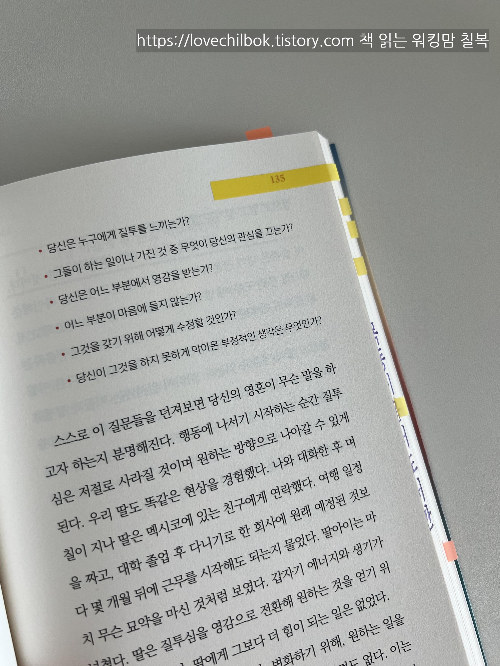 https://lovechilbok.tistory.com 책 읽는 워킹맘 칠복
135
• 당신은 누구에게 질투를 느끼는가?
• 그들이 하는 일이나 가진 것 중 무엇이 당신의 관심을 끄는가?
• 당신은 어느 부분에서 영감을 받는가?
• 어느 부분이 마음에 들지 않는가?
• 그것을 갖기 위해 어떻게 수정할 것인가?
• 당신이 그것을 하지 못하게 막아온 부정적인 생각은 무엇인가?
스스로 이 질문들을 던져보면 당신의 영혼이 무슨 말을 하
고자 하는지 분명해진다. 행동에 나서기 시작하는 순간 질투
심은 저절로 사라질 것이며 원하는 방향으로 나아갈 수 있게
된다. 우리 딸도 똑같은 현상을 경험했다. 나와 대화한 후 며
칠이 지나 딸은 멕시코에 있는 친구에게 연락했다. 여행 일정
을 짜고, 대학 졸업 후 다니기로 한 회사에 원래 예정된 것보
다 몇 개월 뒤에 근무를 시작해도 되는지 물었다. 딸아이는 마
치 무슨 묘약을 마신 것처럼 보였다. 갑자기 에너지와 생기가
딸은 질투심을 영감으로 전환해 원하는 것을 얻기 위
딸에게 그보다 더 힘이 되는 일은 없었다.
변화하기 위해, 원하는 일을
없다. 이는